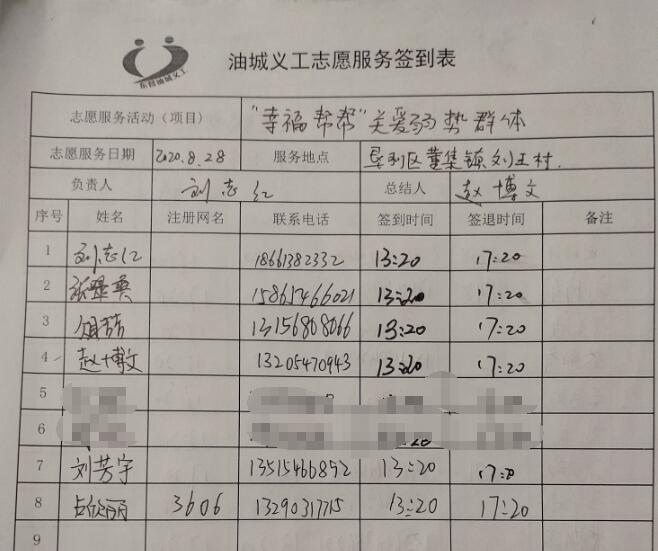 东营油城义工
油城义工志愿服务签到表
志愿服务活动（项目） "幸福帮帮"关爱弱势群体
志愿服务日期 2020.8.28 服务地点 垦利区董集镇刘王村.
负责人 刘志红 总结人 赵博文
序号 姓名 注册网名 联系电话 签到时间 签退时间 备注
1 刘志红 18661382332 13:20 17:20
2 13:20 17:20
3 13156808066 13:20 17:20
4 赵博文 13205470943 13:20 17:20
5
6
7 刘芳宇 13515466852 13:20
8 3606 13290317715 13:20 17:20
9